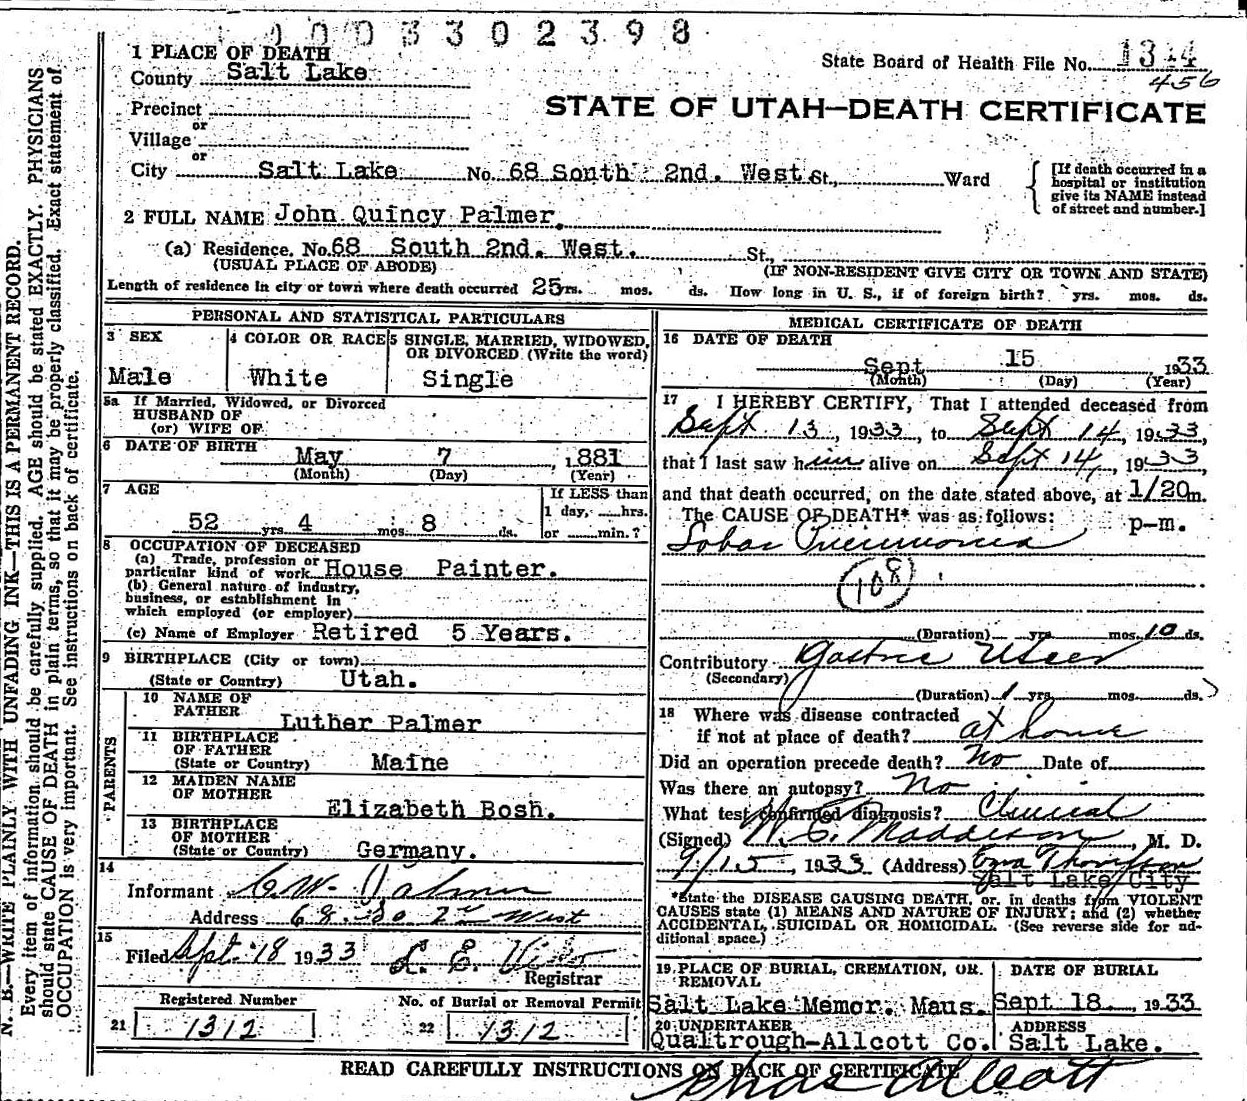 0003302398
1 PLACE OF DEATH
County Salt Lake
State Board of Health File No. 1344
456
Precinct
or
Village
or
STATE OF UTAH—DEATH CERTIFICATE
City Salt Lake No. 68 South 2nd. West St., Ward
[If death occurred in a hospital or institution give its NAME instead of street and number.]
2 FULL NAME John Quincy Palmer.
(a) Residence. No. 68 South 2nd. West. St.,
(USUAL PLACE OF ABODE) (IF NON-RESIDENT GIVE CITY OR TOWN AND STATE)
Length of residence in city or town where death occurred 25 yrs. mos. ds. How long in U. S., if of foreign birth? yrs. mos. ds.
PERSONAL AND STATISTICAL PARTICULARS
3 SEX
Male
4 COLOR OR RACE
White
5 SINGLE, MARRIED, WIDOWED,
OR DIVORCED (Write the word)
Single
5a If Married, Widowed, or Divorced
HUSBAND OF
(or) WIFE OF
6 DATE OF BIRTH May 7, 1881
(Month) (Day) (Year)
7 AGE
52 yrs. 4 mos. 8 ds.
If LESS than
1 day, hrs.
or min.?
8 OCCUPATION OF DECEASED
(a) Trade, profession or
particular kind of work House Painter.
(b) General nature of industry,
business, or establishment in
which employed (or employer)
(c) Name of Employer Retired 5 Years.
9 BIRTHPLACE (City or town)
(State or Country) Utah.
PARENTS
10 NAME OF
FATHER Luther Palmer
11 BIRTHPLACE
OF FATHER
(State or Country) Maine
12 MAIDEN NAME
OF MOTHER
Elizabeth Bosh.
13 BIRTHPLACE
OF MOTHER
(State or Country) Germany.
14
Informant C. W. Palmer
Address 68 So 2nd West
15
Filed Sept. 18 1933 L. E.
Registrar
Registered Number
21 1312
No. of Burial or Removal Permit
22 1312
MEDICAL CERTIFICATE OF DEATH
16 DATE OF DEATH
Sept 15 1933
(Month) (Day) (Year)
17 I HEREBY CERTIFY, That I attended deceased from
Sept 13, 1933, to Sept 14, 1933,
that I last saw him alive on Sept 14, 1933,
and that death occurred, on the date stated above, at 1/20 m.
The CAUSE OF DEATH* was as follows: p-m.
Lobar Pneumonia
108
(Duration) yrs. mos. 10 ds.
Contributory Gastric Ulcer
(Secondary)
(Duration) 1 yrs. mos. ds.
18 Where was disease contracted
if not at place of death? at home
Did an operation precede death? No Date of
Was there an autopsy? No
What test confirmed diagnosis? Clinical
(Signed) W. C. Maddison, M. D.
9/15, 1933 (Address) Ezra Thompson
Salt Lake City
*State the DISEASE CAUSING DEATH, or, in deaths from VIOLENT
CAUSES state (1) MEANS AND NATURE OF INJURY; and (2) whether
ACCIDENTAL, SUICIDAL OR HOMICIDAL. (See reverse side for ad-
ditional space.)
19 PLACE OF BURIAL, CREMATION, OR
REMOVAL
Salt Lake Memor. Maus.
DATE OF BURIAL
Sept 18. 1933
20 UNDERTAKER
Qualtrough-Allcott Co.
ADDRESS
Salt Lake.
READ CAREFULLY INSTRUCTIONS ON BACK OF CERTIFICATE
Chas Allcott
N. B.—WRITE PLAINLY WITH UNFADING INK—THIS IS A PERMANENT RECORD.
Every item of information should be carefully supplied. AGE should be stated EXACTLY. PHYSICIANS
should state CAUSE OF DEATH in plain terms, so that it may be properly classified. Exact statement of
OCCUPATION is very important. See instructions on back of certificate.